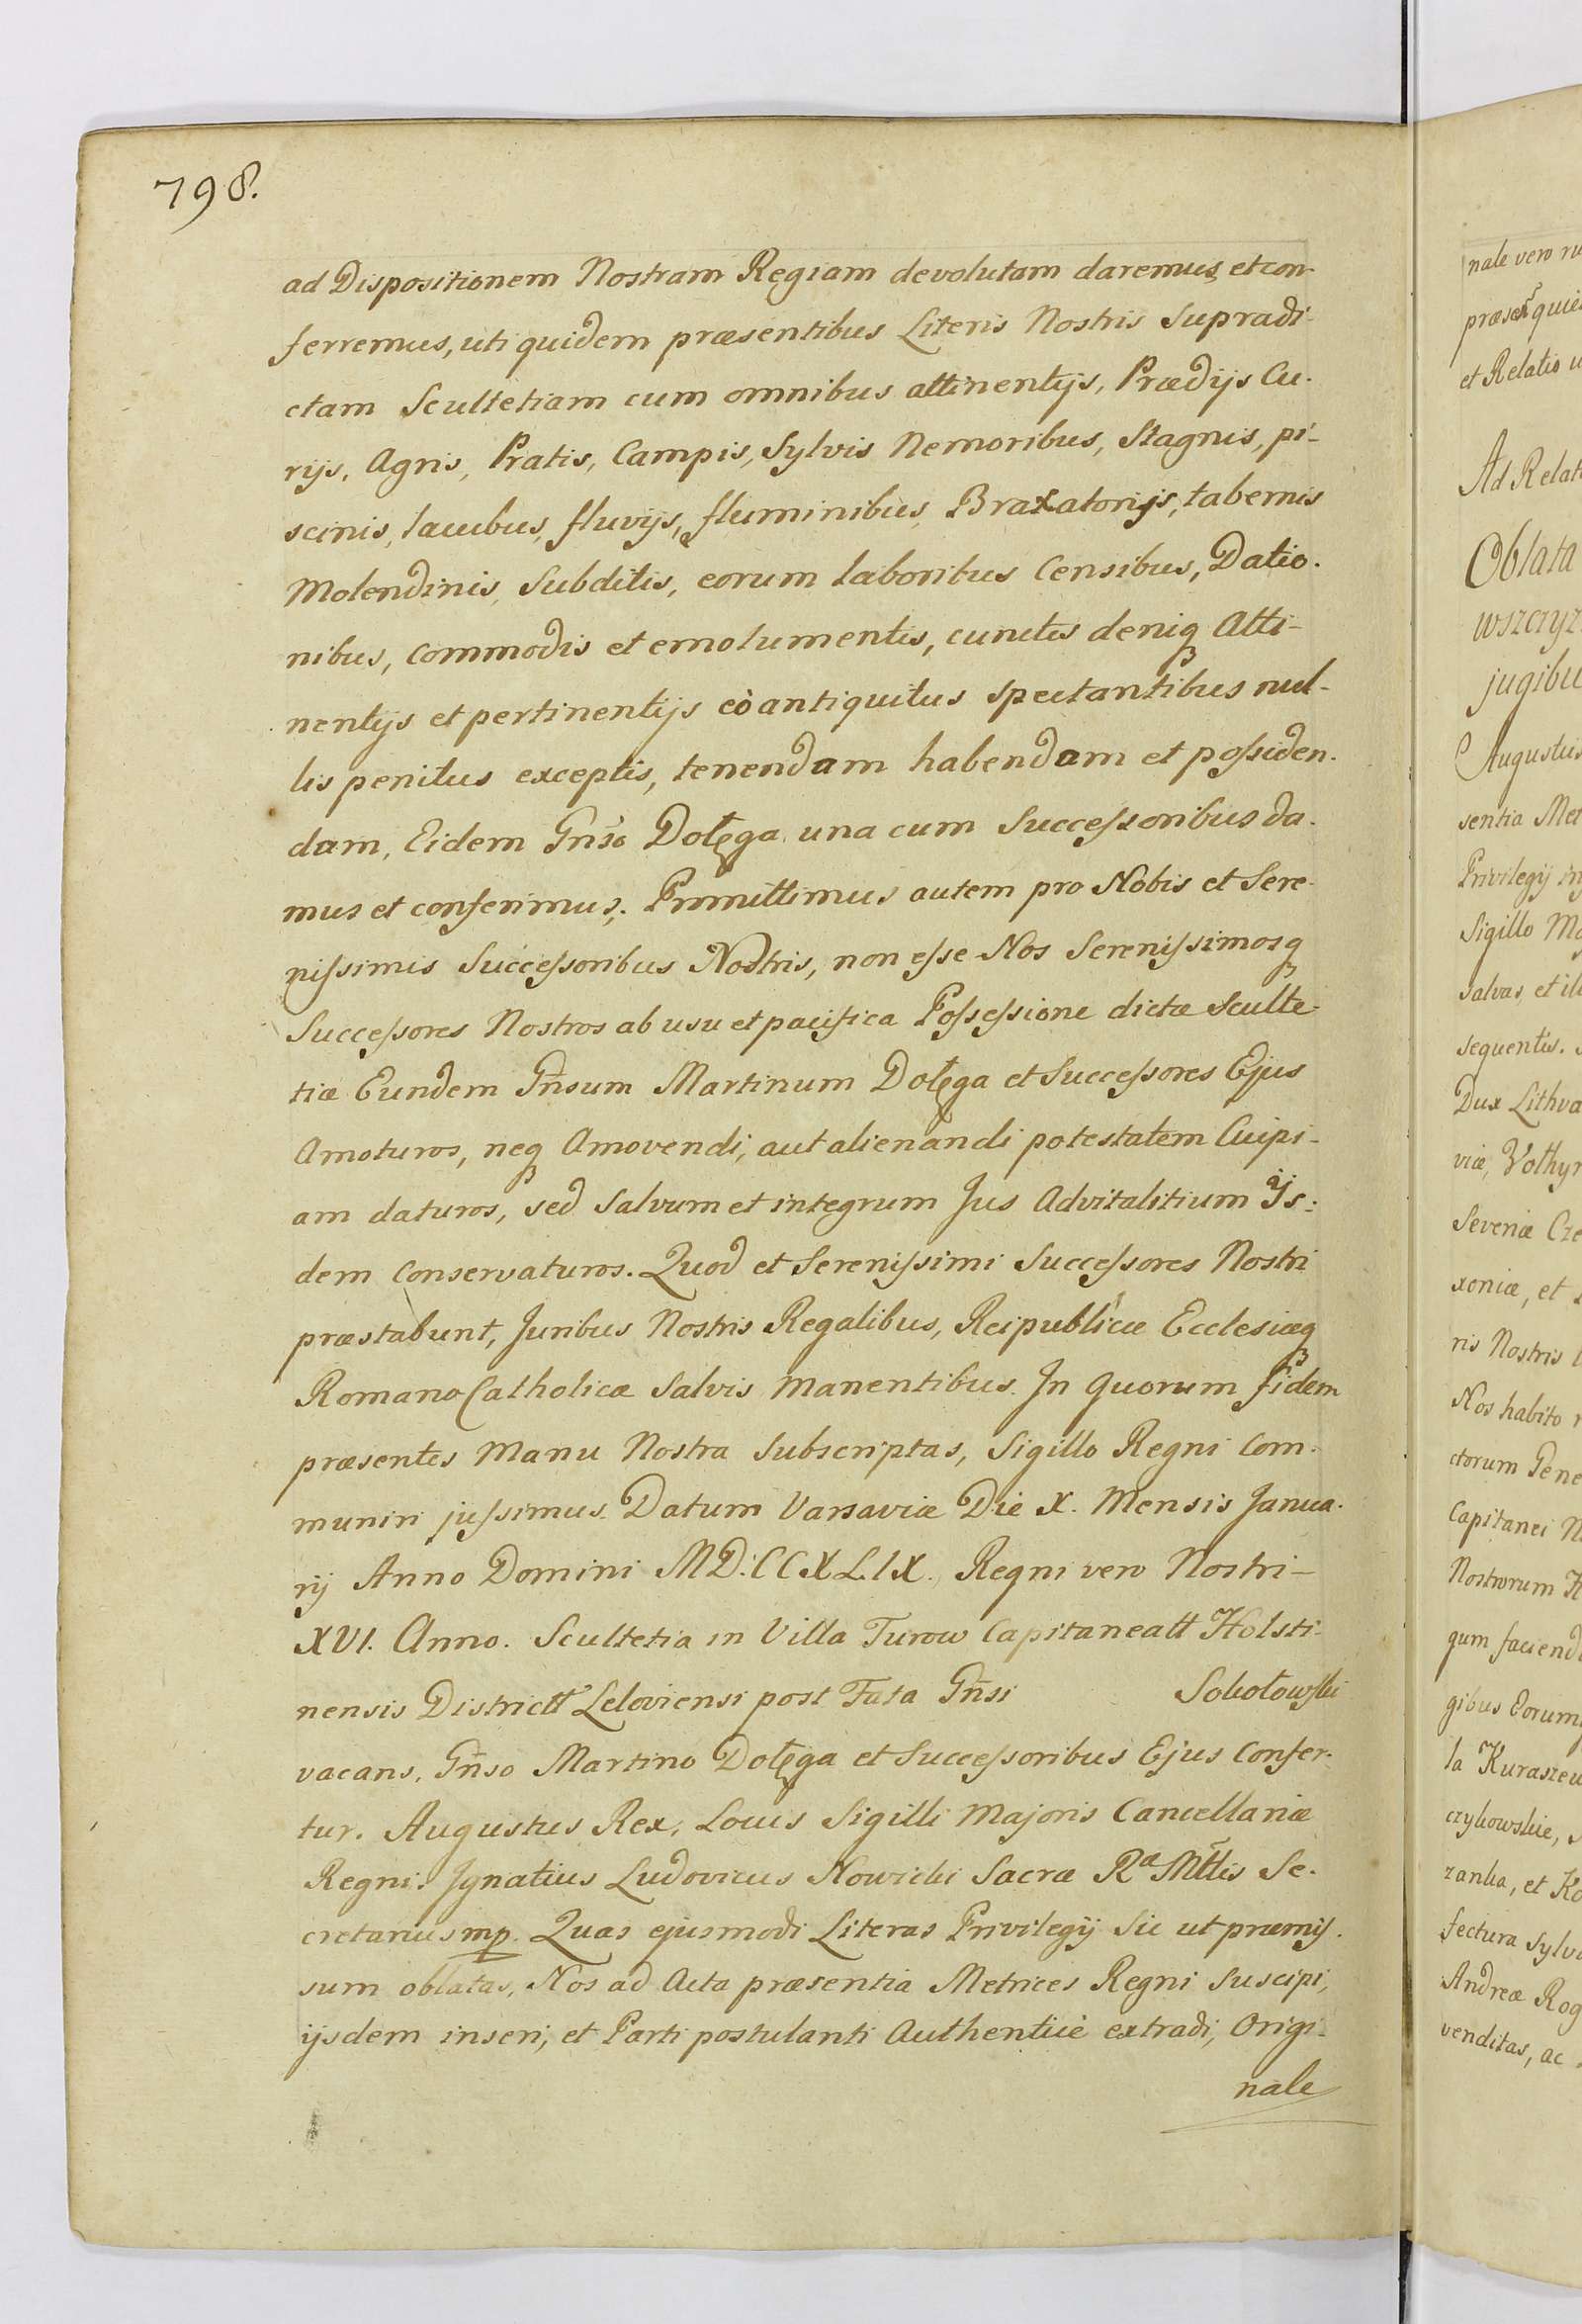 798.
ad Dispositionem Nostram Regiam devolutam daremus, et con-
ferremus, uti quidem præsentibus Literis Nostris Supradi-
ctam Scultetiam cum omnibus attinentijs, Prædijs Cu-
rijs, Agris, Pratis, Campis, Sylvis Nemoribus, Stagnis, pi-
scinis, lacubus, fluvijs, fluminibus, Braxatorijs, tabernis
Molendinis, Subditis, eorum laboribus Censibus, Datio-
nibus, commodis et emolumentis, cunctis deniqȝ Atti-
nentijs et pertinentijs eò antiquitus spectantibus nul-
lis penitus exceptis, tenendam habendam et possiden-
dam, Eidem Gnso Dołęga una cum Successoribus da-
mus et conferimus. Promittimus autem pro Nobis et Sere-
nissimis Successoribus Nostris, non esse Nos Serenissimosqȝ
Successores Nostros ab usu et pacifica Possessione dictæ Sculte-
tiæ Eundem Gnsum Martinum Dołęga et Successores Ejus
Amoturos, neqȝ Amovendi, aut alienandi potestatem Cuipi-
am daturos, sed Salvum et integrum Jus Advitalitium Ijs-
dem Conservaturos. Quod et Serenissimi Successores Nostri
præstabunt, Juribus Nostris Regalibus, Reipublicæ Ecclesiæqȝ
Romano Catholicæ Salvis manentibus. In Quorum fidem
præsentes Manu Nostra Subscriptas, Sigillo Regni Com-
muniri jussimus. Datum Varsaviæ Die X. Mensis Janua-
rij Anno Domini MD.CCXLIX. Regni vero Nostri
XVI. Anno. Scultetia in Villa Turow Capitaneatt Holsti-
nensis Districtt Leloviensi post Fata Gnsi Sokołowski
vacans, Gnso Martino Dołęga et Successoribus Ejus Confer-
tur. Augustus Rex, Locus Sigilli Majoris Cancellariæ
Regni. Ignatius Ludovicus Nowicki Sacræ Rᵃ Mttis Se-
cretarius mp. Quas ejusmodi Literas Privilegij Sic ut præmis-
sum oblatas, Nos ad Acta præsentia Metrices Regni Suscipi,
ijsdem inseri, et Parti postulanti Authenticè extradi, Origi-
nale
nale vero
quie
et Relatio
Ad Relat
Oblata
wszczyz
jugibu
Augustus
sentia Met
Privilegij in
Sigillo Ma
salvas, et
sequentis.
Dux Lithva
viæ, Volhyn
Severiæ Cze
xoniæ, et
ris Nostris
Nos habito
ctorum Gene
Capitanei
Nostrorum
gum faciend
gibus Eorum
la Kuraszew
czykowskie,
zanka, et Ko
fectura Sylv
Andreæ Rog
venditas, ac